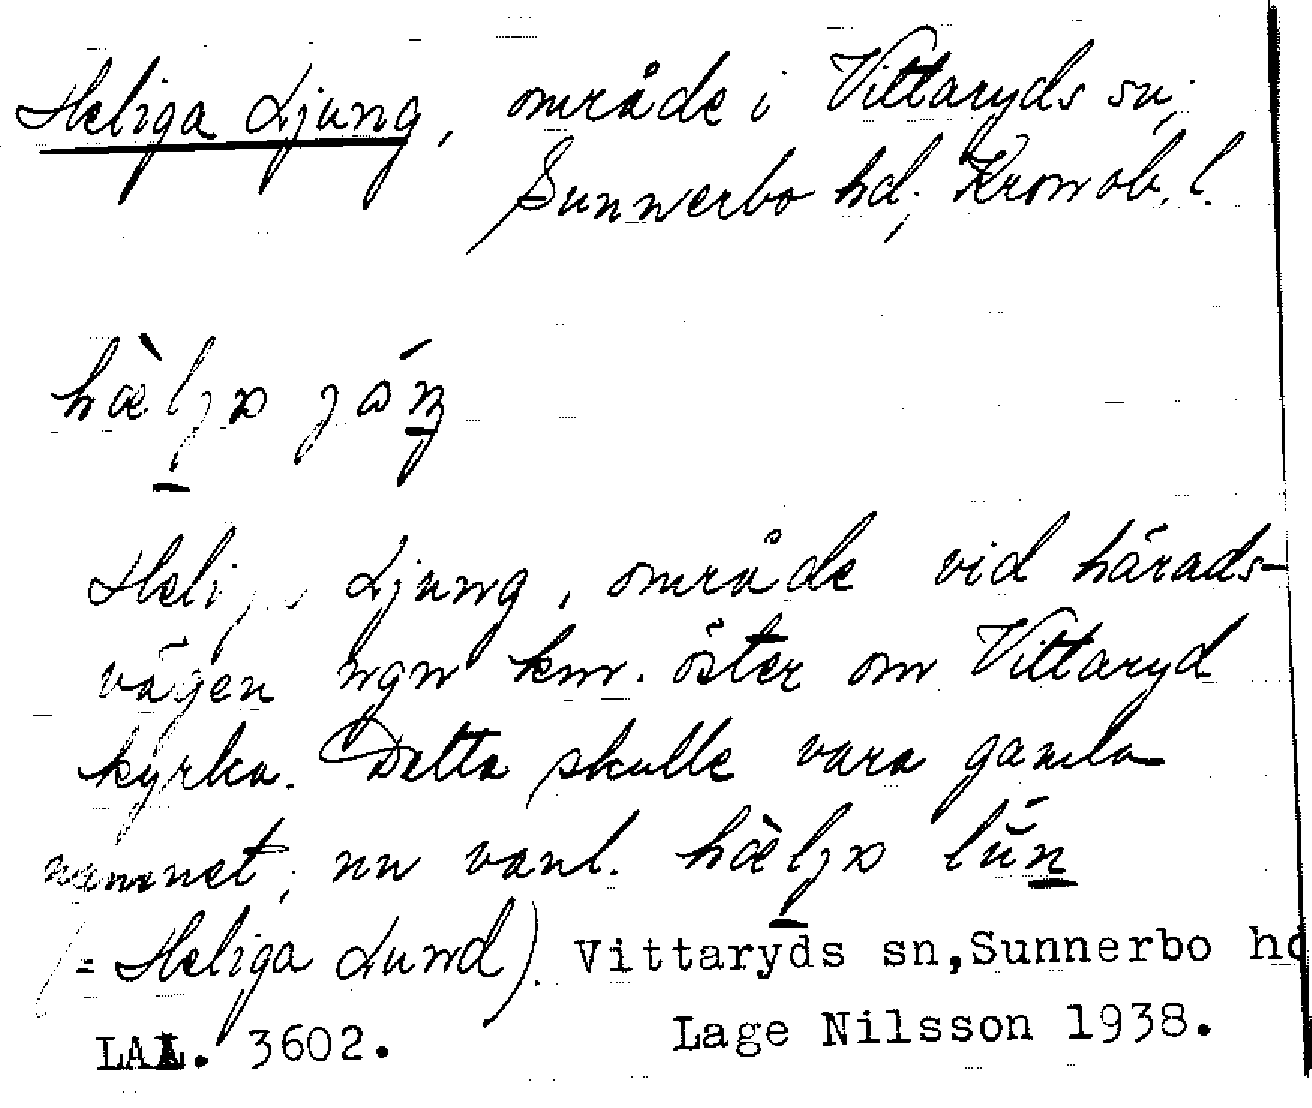 Heliga Ljung, område i Vittaryds sn,
Sunnerbo hd, Kronob. l.
hæ̀lja jáŋ
Heliga Ljung, område vid härads-
vägen ngn km. öster om Vittaryd
kyrka. Detta skulle vara gamla
namnet, nu vanl. hæ̀lja lún
(= Heliga Lund). Vittaryds sn, Sunnerbo hd
LAL. 3602. Lage Nilsson 1938.